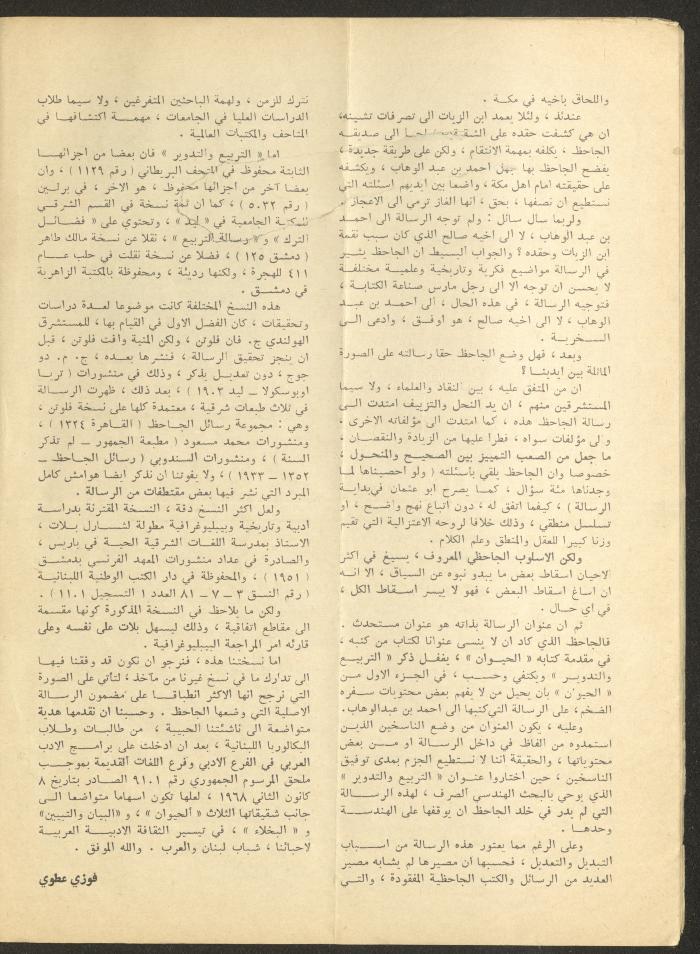 واللحاق بأخيه في مكة .
عندئذ ، ولئلا يعمد ابن الزيات الى تصرفات تشينه،
ان هي كشفت حقده على الشقيقين، لجأ الى صديقه
الجاحظ ، يكلفه بمهمة الانتقام ، ولكن على طريقة جديدة ،
يفضح الجاحظ بها جهل احمد بن عبد الوهاب ، ويكشفه
على حقيقته امام اهل مكة ، واضعا بين ايديهم اسئلته التي
نستطيع ان نصفها ، بحق ، انها الغاز ترمي الى الاعجاز .
ولربما سال سائل : ولم توجه الرسالة الى احمد
بن عبد الوهاب ، لا الى اخيه صالح الذي كان سبب نقمة
ابن الزيات وحقده ؟ والجواب البسيط ان الجاحظ يشير
في الرسالة مواضيع فكرية وتاريخية وعلمية مختلفة
لا يحسن ان توجه الا الى رجل مارس صناعة الكتابة ،
فتوجيه الرسالة ، في هذه الحال ، الى احمد بن عبد
الوهاب ، لا الى اخيه صالح ، هو اوفق ، وادعى الى
السخرية .
وبعد ، فهل وضع الجاحظ حقا رسالته على الصورة
الماثلة بين ايدينا ؟
ان من المتفق عليه ، بين النقاد والعلماء ، ولا سيما
المستشرقين منهم ، ان يد النحل والتزييف امتدت الى
رسالة الجاحظ هذه ، كما امتدت الى مؤلفاته الاخرى ،
والى مؤلفات سواه ، فطرا عليها من الزيادة والنقصان ،
ما جعل من الصعب التمييز بين الصحيح والمنحول ،
خصوصا وان الجاحظ يلقي باسئلته ( ولو احصيناها لما
وجدناها مئة سؤال ، كما يصرح ابو عثمان في بداية
الرسالة ) ، كيفما اتفق له ، دون اتباع نهج واضح ، او
تسلسل منطقي ، وذلك خلافا لروحه الاعتزالية التي تقيم
وزنا كبيرا للعقل والمنطق وعلم الكلام .
ولكن الاسلوب الجاحظي المعروف ، يسيغ في اكثر
الاحيان اسقاط بعض ما يبدو نبوه عن السياق ، الا انه
ان اساغ اسقاط البعض ، فهو لا ييسر اسقاط الكل ،
في اي حال .
ثم ان عنوان الرسالة بذاته هو عنوان مستحدث .
فالجاحظ الذي كاد ان لا ينسى عنوانا لكتاب من كتبه ،
في مقدمة كتابه « الحيوان » ، يغفل ذكر « التربيع
والتدوير » ويكتفي وحسب ، في الجزء الاول من
« الحيوان » بان يحيل من لا يفهم بعض محتويات سفره
الضخم، على الرسالة التي كتبها الى احمد بن عبد الوهاب.
وعليه ، يكون العنوان من وضع الناسخين الذين
استمدوه من الفاظ في داخل الرسالة او من بعض
محتوياتها ، والحقيقة اننا لا نستطيع الجزم بمدى توفيق
الناسخين ، حين اختاروا عنوان « التربيع والتدوير »
الذي يوحي بالبحث الهندسي الصرف ، لهذه الرسالة
التي لم يدر في خلد الجاحظ ان يوقفها على الهندسة
وحدها .
وعلى الرغم مما يعتور هذه الرسالة من اسباب
التبديل والتعديل ، فحسبها ان مصيرها لم يشابه مصير
العديد من الرسائل والكتب الجاحظية المفقودة ، والتي
نترك للزمن ، ولهمة الباحثين المتفرغين ، ولا سيما طلاب
الدراسات العليا في الجامعات ، مهمة اكتشافها في
المتاحف والمكتبات العالمية .
اما « التربيع والتدوير » فان بعضا من اجزائها
الثابتة محفوظ في المتحف البريطاني ( رقم ١١٢٩ ) ، وان
بعضا آخر من اجزائها محفوظ ، هو الآخر ، في برلين
( رقم ٥٠٣٢ ) ، كما ان ثمة نسخة في القسم الشرقي
للمكتبة الجامعية في « ليد » ، وتحتوي على « فضائل
الترك » و « رسالة التربيع » ، نقلا عن نسخة مالك طاهر
( دمشق ١٢٥ ) ، فضلا عن نسخة نقلت في حلب عام
٤١١ للهجرة ، ولكنها رديئة ، ومحفوظة بالمكتبة الزاهرية
في دمشق .
هذه النسخ المختلفة كانت موضوعا لعدة دراسات
وتحقيقات ، كان الفضل الاول في القيام بها ، للمستشرق
الهولندي ج. فان فلوتن ، ولكن المنية وافت فلوتن ، قبل
ان ينجز تحقيق الرسالة ، فنشرها بعده ، ج. م. دو
جوج ، دون تعديل يذكر ، وذلك في منشورات ( تريا
اوبوسكولا – ليد ١٩٠٣ ) ، بعد ذلك ، ظهرت الرسالة
في ثلاث طبعات شرقية ، معتمدة كلها على نسخة فلوتن ،
وهي : مجموعة رسائل الجاحظ ( القاهرة ١٣٢٤ ) ،
ومنشورات محمد مسعود ( مطبعة الجمهور – لم تذكر
السنة ) ، ومنشورات السندوبي ( رسائل الجاحظ –
١٣٥٢ – ١٩٣٣ ) ، ولا يفوتنا ان نذكر ايضا هوامش كامل
المبرد التي نشر فيها بعض مقتطفات من الرسالة .
ولعل اكثر النسخ دقة ، النسخة المقترنة بدراسة
ادبية وتاريخية وببيليوغرافية مطولة لشارل بلات ،
الاستاذ بمدرسة اللغات الشرقية الحية في باريس ،
والصادرة في عداد منشورات المعهد الفرنسي بدمشق
( ١٩٥١ ) ، والمحفوظة في دار الكتب الوطنية اللبنانية
( رقم النسق ٣ – ٧ – ٨١ العدد ١ التسجيل ١١.٠١ ) .
ولكن ما يلاحظ في النسخة المذكورة كونها مقسمة
الى مقاطع اتفاقية ، وذلك ليسهل بلات على نفسه وعلى
قارئه امر المراجعة الببيليوغرافية .
اما نسختنا هذه ، فنرجو ان نكون قد وفقنا فيها
الى تدارك ما في نسخ غيرنا من مآخذ ، لتأتي على الصورة
التي نرجح انها الاكثر انطباقا على مضمون الرسالة
الاصلية التي وضعها الجاحظ . وحسبنا ان نقدمها هدية
متواضعة الى ناشئتنا الحبيبة ، من طالبات وطلاب
البكالوريا اللبنانية ، بعد ان ادخلت على برامج الادب
العربي في الفرع الادبي وفرع اللغات القديمة بموجب
ملحق المرسوم الجمهوري رقم ٩١٠١ الصادر بتاريخ ٨
كانون الثاني ١٩٦٨ ، لعلها تكون اسهاما متواضعا الى
جانب شقيقاتها الثلاث « الحيوان » ، و « البيان والتبيين»
و « البخلاء » ، في تيسير الثقافة الادبية العربية
لاحبائنا ، شباب لبنان والعرب . والله الموفق .
فوزي عطوي